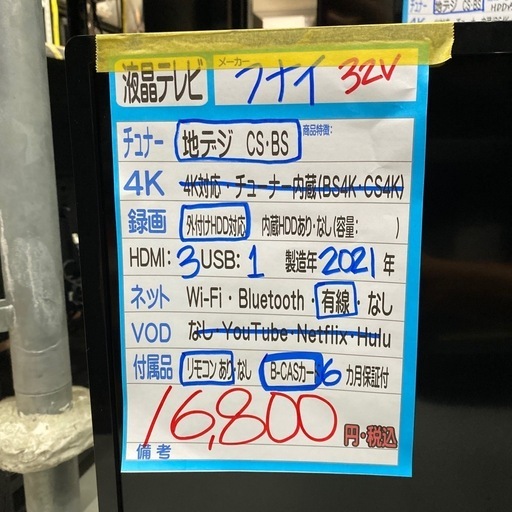 液晶テレビ メーカー フナイ 32V
チュナー 地デジ CS・BS 商品特徴：
4K 4K対応・チューナー内蔵(BS4K・CS4K)
録画 外付けHDD対応 内蔵HDDあり・なし(容量： )
HDMI: 3 USB: 1 製造年 2021 年
ネット Wi-Fi・Bluetooth・有線・なし
VOD なし・YouTube・Netflix・Hulu
付属品 リモコンあり・なし B-CASカード 6 カ月保証付
16,800 円・税込
備考
チュナー 地デジ CS・BS
4K